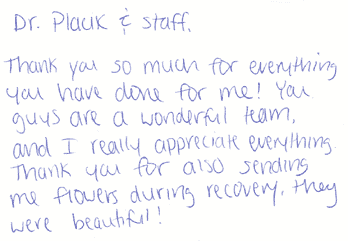 Dr. Plauk & staff,
Thank you so much for everything
you have done for me! You
guys are a wonderful team,
and I really appreciate everything.
Thank you for also sending
me flowers during recovery, they
were beautiful!